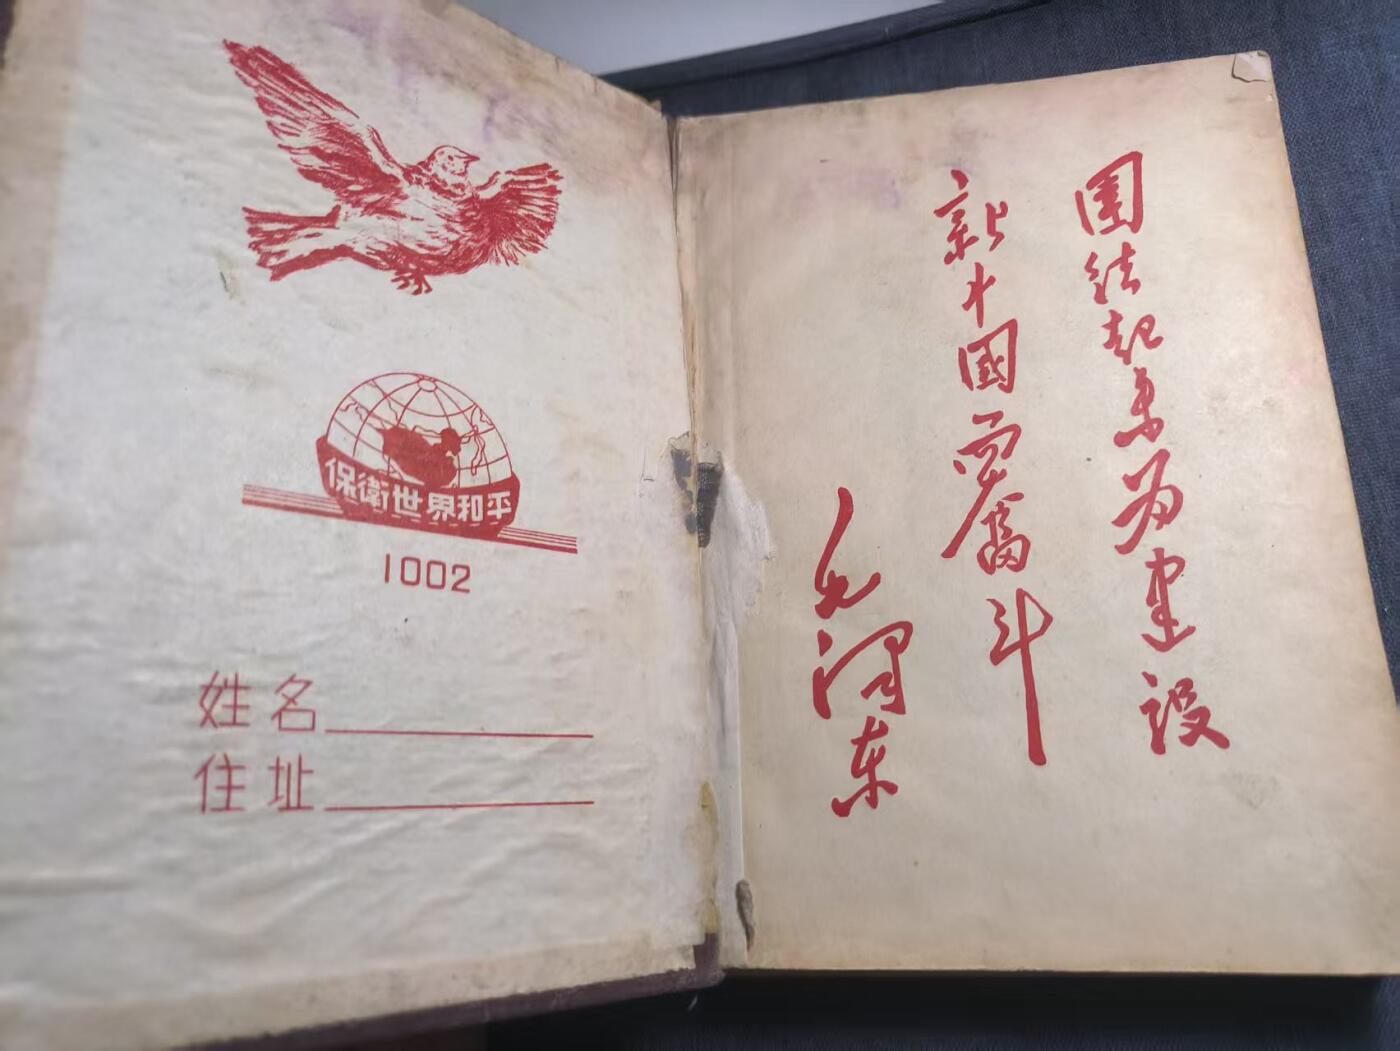 保衛世界和平
1002
姓名
住址
團结起来为建設
新中國而奮斗
毛澤东